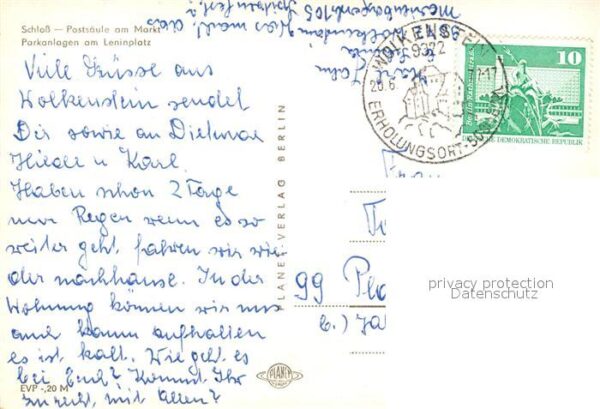 Schloß — Postsäule am Markt
Parkanlagen am Leninplatz
Viele Grüsse aus
Wolkenstein sendet
Dir sowie an Dietmar
Heide u Karl.
Haben schon 2 Tage
nur Regen wenn es so
weiter geht fahren wir wie
der nachhause. In der
Wohnung können wir uns
auch kaum aufhalten
es ist kalt. Wie geht es
bei Euch? Kommt Ihr
zurecht mit Allem?
EVP -,20 M
PLANET-VERLAG BERLIN
PLANET
WOLKENSTEIN
9372
ERHOLUNGSORT
10
DEUTSCHE DEMOKRATISCHE REPUBLIK
99
privacy protection
Datenschutz